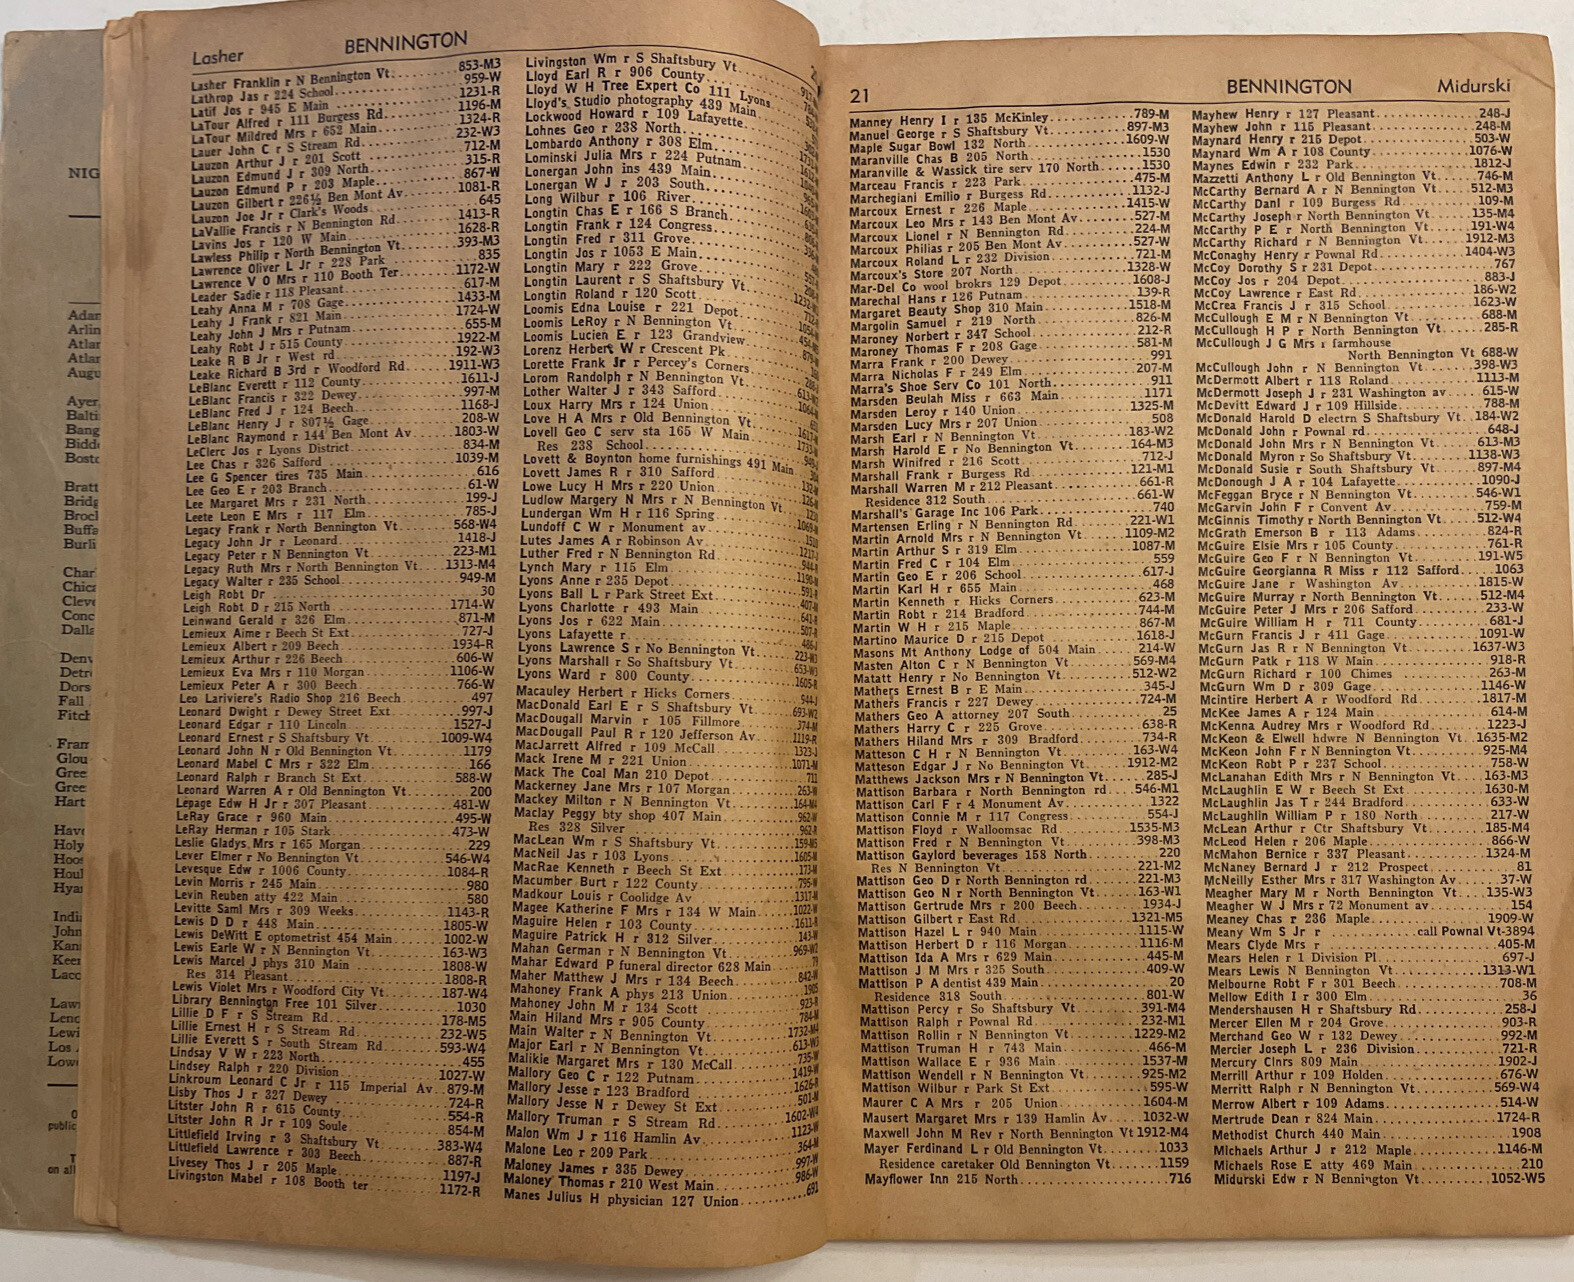 Lasher
BENNINGTON
Lasher Franklin r N Bennington Vt 853-M3
Lathrop Jas r 224 School 959-W
Latif Jos r 945 E Main 1231-R
LaTour Alfred r 111 Burgess Rd 1196-M
LaTour Mildred Mrs r 652 Main 1324-R
Lauer John C r S Stream Rd 232-W3
Lauzon Arthur J r 201 Scott 712-M
Lauzon Edmund J r 309 North 315-R
Lauzon Edmund P r 203 Maple 867-W
Lauzon Gilbert r 226½ Ben Mont Av 1081-R
Lauzon Joe Jr r Clark's Woods 645
LaVallie Francis r N Bennington Rd 1413-R
Lavins Jos r 120 W Main 1628-R
Lawless Philip r North Bennington Vt 393-M3
Lawrence Oliver L Jr r 228 Park 835
Lawrence V O Mrs r 110 Booth Ter 1172-W
Leader Sadie r 118 Pleasant 617-M
Leahy Anna M r 708 Gage 1433-M
Leahy J Frank r 821 Main 1724-W
Leahy John J Mrs r Putnam 655-M
Leahy Robt J r 515 County 1922-M
Leake R B Jr r West rd 192-W3
Leake Richard B 3rd r Woodford Rd 1911-W3
LeBlanc Everett r 112 County 1611-J
LeBlanc Francis r 322 Dewey 997-M
LeBlanc Fred J r 124 Beech 1168-J
LeBlanc Henry J r 807½ Gage 208-W
LeBlanc Raymond r 144 Ben Mont Av 1803-W
LeClerc Jos r Lyons District 834-M
Lee Chas r 326 Safford 1039-M
Lee G Spencer tires 735 Main 616
Lee Geo E r 203 Branch 61-W
Lee Margaret Mrs r 231 North 199-J
Leete Leon E Mrs r 117 Elm 785-J
Legacy Frank r North Bennington Vt 568-W4
Legacy John Jr r Leonard 1418-J
Legacy Peter r N Bennington Vt 223-M1
Legacy Ruth Mrs r North Bennington Vt 1313-M4
Legacy Walter r 235 School 949-M
Leigh Robt Dr 30
Leigh Robt D r 215 North 1714-W
Leinwand Gerald r 326 Elm 871-M
Lemieux Aime r Beech St Ext 727-J
Lemieux Albert r 209 Beech 1934-R
Lemieux Arthur r 226 Beech 606-W
Lemieux Eva Mrs r 110 Morgan 1106-W
Lemieux Peter A r 300 Beech 766-W
Leo Lariviere's Radio Shop 216 Beech 497
Leonard Dwight r Dewey Street Ext 997-J
Leonard Edgar r 110 Lincoln 1527-J
Leonard Ernest r S Shaftsbury Vt 1009-W4
Leonard John N r Old Bennington Vt 1179
Leonard Mabel C Mrs r 322 Elm 166
Leonard Ralph r Branch St Ext 588-W
Leonard Warren A r Old Bennington Vt 200
Lepage Edw H Jr r 307 Pleasant 481-W
LeRay Grace r 960 Main 495-W
LeRay Herman r 105 Stark 473-W
Leslie Gladys Mrs r 165 Morgan 229
Lever Elmer r No Bennington Vt 546-W4
Levesque Edw r 1006 County 1084-R
Levin Morris r 245 Main 980
Levin Reuben atty 422 Main 580
Levitte Saml Mrs r 309 Weeks 1143-R
Lewis D D r 448 Main 1805-W
Lewis DeWitt E optometrist 454 Main 1002-W
Lewis Earle W r N Bennington Vt 163-W3
Lewis Marcel J phys 310 Main 1808-W
Res 314 Pleasant 1808-R
Lewis Violet Mrs r Woodford City Vt 187-W4
Library Bennington Free 101 Silver 1030
Lillie D F r S Stream Rd 178-M5
Lillie Ernest H r S Stream Rd 232-W5
Lillie Everett S r South Stream Rd 593-W4
Lindsay V W r 223 North 455
Lindsey Ralph r 220 Division 1027-W
Linkroum Leonard C Jr r 115 Imperial Av 879-M
Lisby Thos J r 327 Dewey 724-R
Litster John R r 615 County 554-R
Litster John R Jr r 109 Soule 854-M
Littlefield Irving r 3 Shaftsbury Vt 383-W4
Littlefield Lawrence r 303 Beech 887-R
Livesey Thos J r 205 Maple 1197-J
Livingston Mabel r 108 Booth ter 1172-R
Livingston Wm r S Shaftsbury Vt
Lloyd Earl R r 906 County
Lloyd W H Tree Expert Co 111 Lyons
Lloyd's Studio photography 439 Main
Lockwood Howard r 109 Lafayette
Lohnes Geo r 238 North
Lombardo Anthony r 308 Elm
Lominski Julia Mrs r 224 Putnam
Lonergan John ins 439 Main
Lonergan W J r 203 South
Long Wilbur r 106 River
Longtin Chas E r 166 S Branch
Longtin Frank r 124 Congress
Longtin Fred r 311 Grove
Longtin Jos r 1053 E Main
Longtin Mary r 222 Grove
Longtin Laurent r S Shaftsbury Vt
Longtin Roland r 120 Scott
Loomis Edna Louise r 221 Depot
Loomis LeRoy r N Bennington Vt
Loomis Lucien E r 123 Grandview
Lorenz Herbert W r Crescent Pk
Lorette Frank Jr r Percey's Corners
Lorom Randolph r N Bennington Vt
Lother Walter J r 343 Safford
Loux Harry Mrs r 124 Union
Love H A Mrs r Old Bennington Vt
Lovell Geo C serv sta 165 W Main
Res 238 School
Lovett & Boynton home furnishings 491 Main
Lovett James R r 310 Safford
Lowe Lucy H Mrs r 220 Union
Ludlow Margery N Mrs r N Bennington Vt
Lundergan Wm H r 116 Spring
Lundoff C W r Monument av
Lutes James A r Robinson Av
Luther Fred r N Bennington Rd
Lynch Mary r 115 Elm
Lyons Anne r 235 Depot
Lyons Ball L r Park Street Ext
Lyons Charlotte r 493 Main
Lyons Jos r 622 Main
Lyons Lafayette r
Lyons Lawrence S r No Bennington Vt
Lyons Marshall r So Shaftsbury Vt
Lyons Ward r 800 County 1605-R
Macauley Herbert r Hicks Corners 944-J
MacDonald Earl E r S Shaftsbury Vt 693-W2
MacDougall Marvin r 105 Fillmore 374-M
MacDougall Paul R r 120 Jefferson Av 1119-R
MacJarrett Alfred r 109 McCall 1323-J
Mack Irene M r 221 Union 1071-M
Mack The Coal Man 210 Depot 711
Mackerney Jane Mrs r 107 Morgan 263-W
Mackey Milton r N Bennington Vt 164-M4
Maclay Peggy bty shop 407 Main 962-W
Res 328 Silver 962-R
MacLean Wm r S Shaftsbury Vt 159-M5
MacNeil Jas r 103 Lyons 1605-M
MacRae Kenneth r Beech St Ext 173-M
Macumber Burt r 122 County 795-W
Madkour Louis r Coolidge Av 1317-M
Magee Katherine F Mrs r 134 W Main 1022-W
Maguire Helen r 103 County 1611-R
Maguire Patrick H r 312 Silver 143-W
Mahan German r N Bennington Vt 969-W2
Mahar Edward P funeral director 628 Main 79
Maher Matthew J Mrs r 134 Beech 842-W
Mahoney Frank A phys 213 Union 1905
Mahoney John M r 134 Scott 923-R
Main Hiland Mrs r 905 County 784-M
Main Walter r N Bennington Vt 1732-M4
Major Earl r N Bennington Vt 613-W3
Malikie Margaret Mrs r 130 McCall 735-W
Mallory Geo C r 122 Putnam 1419-W
Mallory Jesse r 123 Bradford 1626-R
Mallory Jesse N r Dewey St Ext 501-M
Mallory Truman r S Stream Rd 1602-W4
Malon Wm J r 116 Hamlin Av 1123-W
Malone Leo r 209 Park 364-M
Maloney James r 335 Dewey 997-W
Maloney Thomas r 210 West Main 986-W
Manes Julius H physician 127 Union 691
21
BENNINGTON
Midurski
Manney Henry I r 135 McKinley 789-M
Manuel George r S Shaftsbury Vt 897-M3
Maple Sugar Bowl 132 North 1609-W
Maranville Chas B 205 North 1530
Maranville & Wassick tire serv 170 North 1530
Marceau Francis r 223 Park 475-M
Marchegiani Emilio r Burgess Rd 1132-J
Marcoux Ernest r 226 Maple 1415-W
Marcoux Leo Mrs r 143 Ben Mont Av 527-M
Marcoux Lionel r N Bennington Rd 224-M
Marcoux Philias r 205 Ben Mont Av 527-W
Marcoux Roland L r 232 Division 721-M
Marcoux's Store 207 North 1328-W
Mar-Del Co wool brokrs 129 Depot 1608-J
Marechal Hans r 126 Putnam 139-R
Margaret Beauty Shop 310 Main 1518-M
Margolin Samuel r 219 North 826-M
Maroney Norbert r 347 School 212-R
Maroney Thomas F r 208 Gage 581-M
Marra Frank r 200 Dewey 991
Marra Nicholas F r 249 Elm 207-M
Marra's Shoe Serv Co 101 North 911
Marsden Beulah Miss r 663 Main 1171
Marsden Leroy r 140 Union 1325-M
Marsden Lucy Mrs r 207 Union 508
Marsh Earl r N Bennington Vt 183-W2
Marsh Harold E r No Bennington Vt 164-M3
Marsh Winifred r 216 Scott 712-J
Marshall Frank r Burgess Rd 121-M1
Marshall Warren M r 212 Pleasant 661-R
Residence 312 South 661-W
Marshall's Garage Inc 106 Park 740
Martensen Erling r N Bennington Rd 221-W1
Martin Arnold Mrs r N Bennington Vt 1109-M2
Martin Arthur S r 319 Elm 1087-M
Martin Fred C r 104 Elm 559
Martin Geo E r 206 School 617-J
Martin Karl H r 655 Main 468
Martin Kenneth r Hicks Corners 623-M
Martin Robt r 214 Bradford 744-M
Martin W H r 215 Maple 867-M
Martino Maurice D r 215 Depot 1618-J
Masons Mt Anthony Lodge of 504 Main 214-W
Masten Alton C r N Bennington Vt 569-M4
Matatt Henry r No Bennington Vt 512-W2
Mathers Ernest B r E Main 345-J
Mathers Francis r 227 Dewey 724-M
Mathers Geo A attorney 207 South 25
Mathers Harry C r 225 Grove 638-R
Mathers Hiland Mrs r 309 Bradford 734-R
Matteson C H r N Bennington Vt 163-W4
Matteson Edgar J r No Bennington Vt 1912-M2
Matthews Jackson Mrs r N Bennington Vt 285-J
Mattison Barbara r North Bennington rd 546-M1
Mattison Carl F r 4 Monument Av 1322
Mattison Connie M r 117 Congress 554-J
Mattison Floyd r Walloomsac Rd 1535-M3
Mattison Fred r N Bennington Vt 398-M3
Mattison Gaylord beverages 158 North 220
Res N Bennington Vt 221-M2
Mattison Geo D r North Bennington rd 221-M3
Mattison Geo N r North Bennington Vt 163-W1
Mattison Gertrude Mrs r 200 Beech 1934-J
Mattison Gilbert r East Rd 1321-M5
Mattison Hazel L r 940 Main 1115-W
Mattison Herbert D r 116 Morgan 1116-M
Mattison Ida A Mrs r 629 Main 445-M
Mattison J M Mrs r 325 South 409-W
Mattison P A dentist 439 Main 20
Residence 318 South 801-W
Mattison Percy r So Shaftsbury Vt 391-M4
Mattison Ralph r Pownal Rd 232-M1
Mattison Rollin r N Bennington Vt 1229-M2
Mattison Truman H r 743 Main 466-M
Mattison Wallace E r 936 Main 1537-M
Mattison Wendell r N Bennington Vt 925-M2
Mattison Wilbur r Park St Ext 595-W
Maurer C A Mrs r 205 Union 1604-M
Mausert Margaret Mrs r 139 Hamlin Av 1032-W
Maxwell John M Rev r North Bennington Vt 1912-M4
Mayer Ferdinand L r Old Bennington Vt 1033
Residence caretaker Old Bennington Vt 1159
Mayflower Inn 215 North 716
Mayhew Henry r 127 Pleasant 248-J
Mayhew John r 115 Pleasant 248-M
Maynard Henry r 215 Depot 503-W
Maynard Wm A r 108 County 1076-W
Maynes Edwin r 232 Park 1812-J
Mazzetti Anthony L r Old Bennington Vt 746-M
McCarthy Bernard A r N Bennington Vt 512-M3
McCarthy Danl r 109 Burgess Rd 109-M
McCarthy Joseph r North Bennington Vt 135-M4
McCarthy P E r North Bennington Vt 191-W4
McCarthy Richard r N Bennington Vt 1912-M3
McConaghy Henry r Pownal Rd 1404-W3
McCoy Dorothy S r 231 Depot 767
McCoy Jos r 204 Depot 883-J
McCoy Lawrence r East Rd 186-W2
McCrea Francis J r 315 School 1623-W
McCullough E M r N Bennington Vt 688-M
McCullough H P r North Bennington Vt 285-R
McCullough J G Mrs r farmhouse
North Bennington Vt 688-W
McCullough John r N Bennington Vt 398-W3
McDermott Albert r 118 Roland 1113-M
McDermott Joseph J r 231 Washington av 615-W
McDevitt Edward J r 109 Hillside 788-M
McDonald Harold D electrn S Shaftsbury Vt 184-W2
McDonald John r Pownal rd 648-J
McDonald John Mrs r N Bennington Vt 613-M3
McDonald Myron r So Shaftsbury Vt 1138-W3
McDonald Susie r South Shaftsbury Vt 897-M4
McDonough J A r 104 Lafayette 1090-J
McFeggan Bryce r N Bennington Vt 546-W1
McGarvin John F r Convent Av 759-M
McGinnis Timothy r North Bennington Vt 512-W4
McGrath Emerson B r 113 Adams 824-R
McGuire Elsie Mrs r 105 County 761-R
McGuire Geo F r N Bennington Vt 191-W5
McGuire Georgianna R Miss r 112 Safford 1063
McGuire Jane r Washington Av 1815-W
McGuire Murray r North Bennington Vt 512-M4
McGuire Peter J Mrs r 206 Safford 233-W
McGuire William H r 711 County 681-J
McGurn Francis J r 411 Gage 1091-W
McGurn Jas R r N Bennington Vt 1637-W3
McGurn Patk r 118 W Main 918-R
McGurn Richard r 100 Chimes 263-M
McGurn Wm D r 309 Gage 1146-W
McIntire Herbert A r Woodford Rd 1817-M
McKee James A r 124 Main 614-M
McKenna Audrey Mrs r Woodford Rd 1223-J
McKeon & Elwell hdwre N Bennington Vt 1635-M2
McKeon John F r N Bennington Vt 925-M4
McKeon Robt P r 237 School 758-W
McLanahan Edith Mrs r N Bennington Vt 163-M3
McLaughlin E W r Beech St Ext 1630-M
McLaughlin Jas T r 244 Bradford 633-W
McLaughlin William P r 180 North 217-W
McLean Arthur r Ctr Shaftsbury Vt 185-M4
McLeod Helen r 206 Maple 866-W
McMahon Bernice r 337 Pleasant 1324-M
McNaney Bernard J r 212 Prospect 81
McNeilly Esther Mrs r 317 Washington Av 37-W
Meagher Mary M r North Bennington Vt 135-W3
Meagher W J Mrs r 72 Monument av 154
Meaney Chas r 236 Maple 1909-W
Meany Wm S Jr r call Pownal Vt-3894
Mears Clyde Mrs r 405-M
Mears Helen r 1 Division Pl 697-J
Mears Lewis N Bennington Vt 1313-W1
Melbourne Robt F r 301 Beech 708-M
Mellow Edith I r 300 Elm 36
Mendershausen H r Shaftsbury Rd 258-J
Mercer Ellen M r 204 Grove 903-R
Merchand Geo W r 132 Dewey 992-M
Mercier Joseph L r 236 Division 721-R
Mercury Clnrs 809 Main 1902-J
Merrill Arthur r 109 Holden 676-W
Merritt Ralph r N Bennington Vt 569-W4
Merrow Albert r 109 Adams 514-W
Mertrude Dean r 824 Main 1724-R
Methodist Church 440 Main 1908
Michaels Arthur J r 212 Maple 1146-M
Michaels Rose E atty 469 Main 210
Midurski Edw r N Bennington Vt 1052-W5